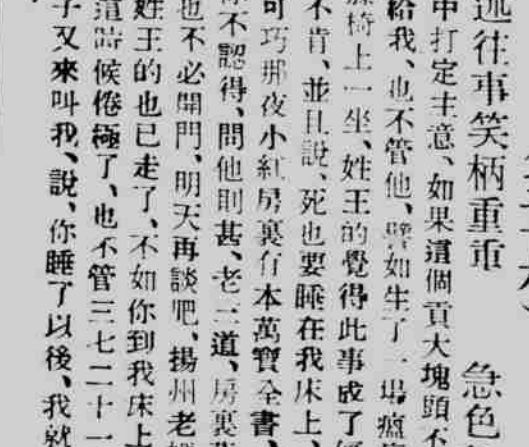 述往事笑柄重重 急色
中打定主意、如果這個貢大塊頭不
給我、也不管他、譬如生了一場瘋
椅上一坐、姓王的覺得此事成了
不肯、並且說、死也要睡在我床上、
可巧那夜小紅房裏有本萬寶全書、
不認得、問他則甚、老二道、房裏
也不必開門、明天再談吧、揚州老
姓王的也已走了、不如你到我床上
這時候倦極了、也不管三七二十一
子又來叫我、說、你睡了以後、我就